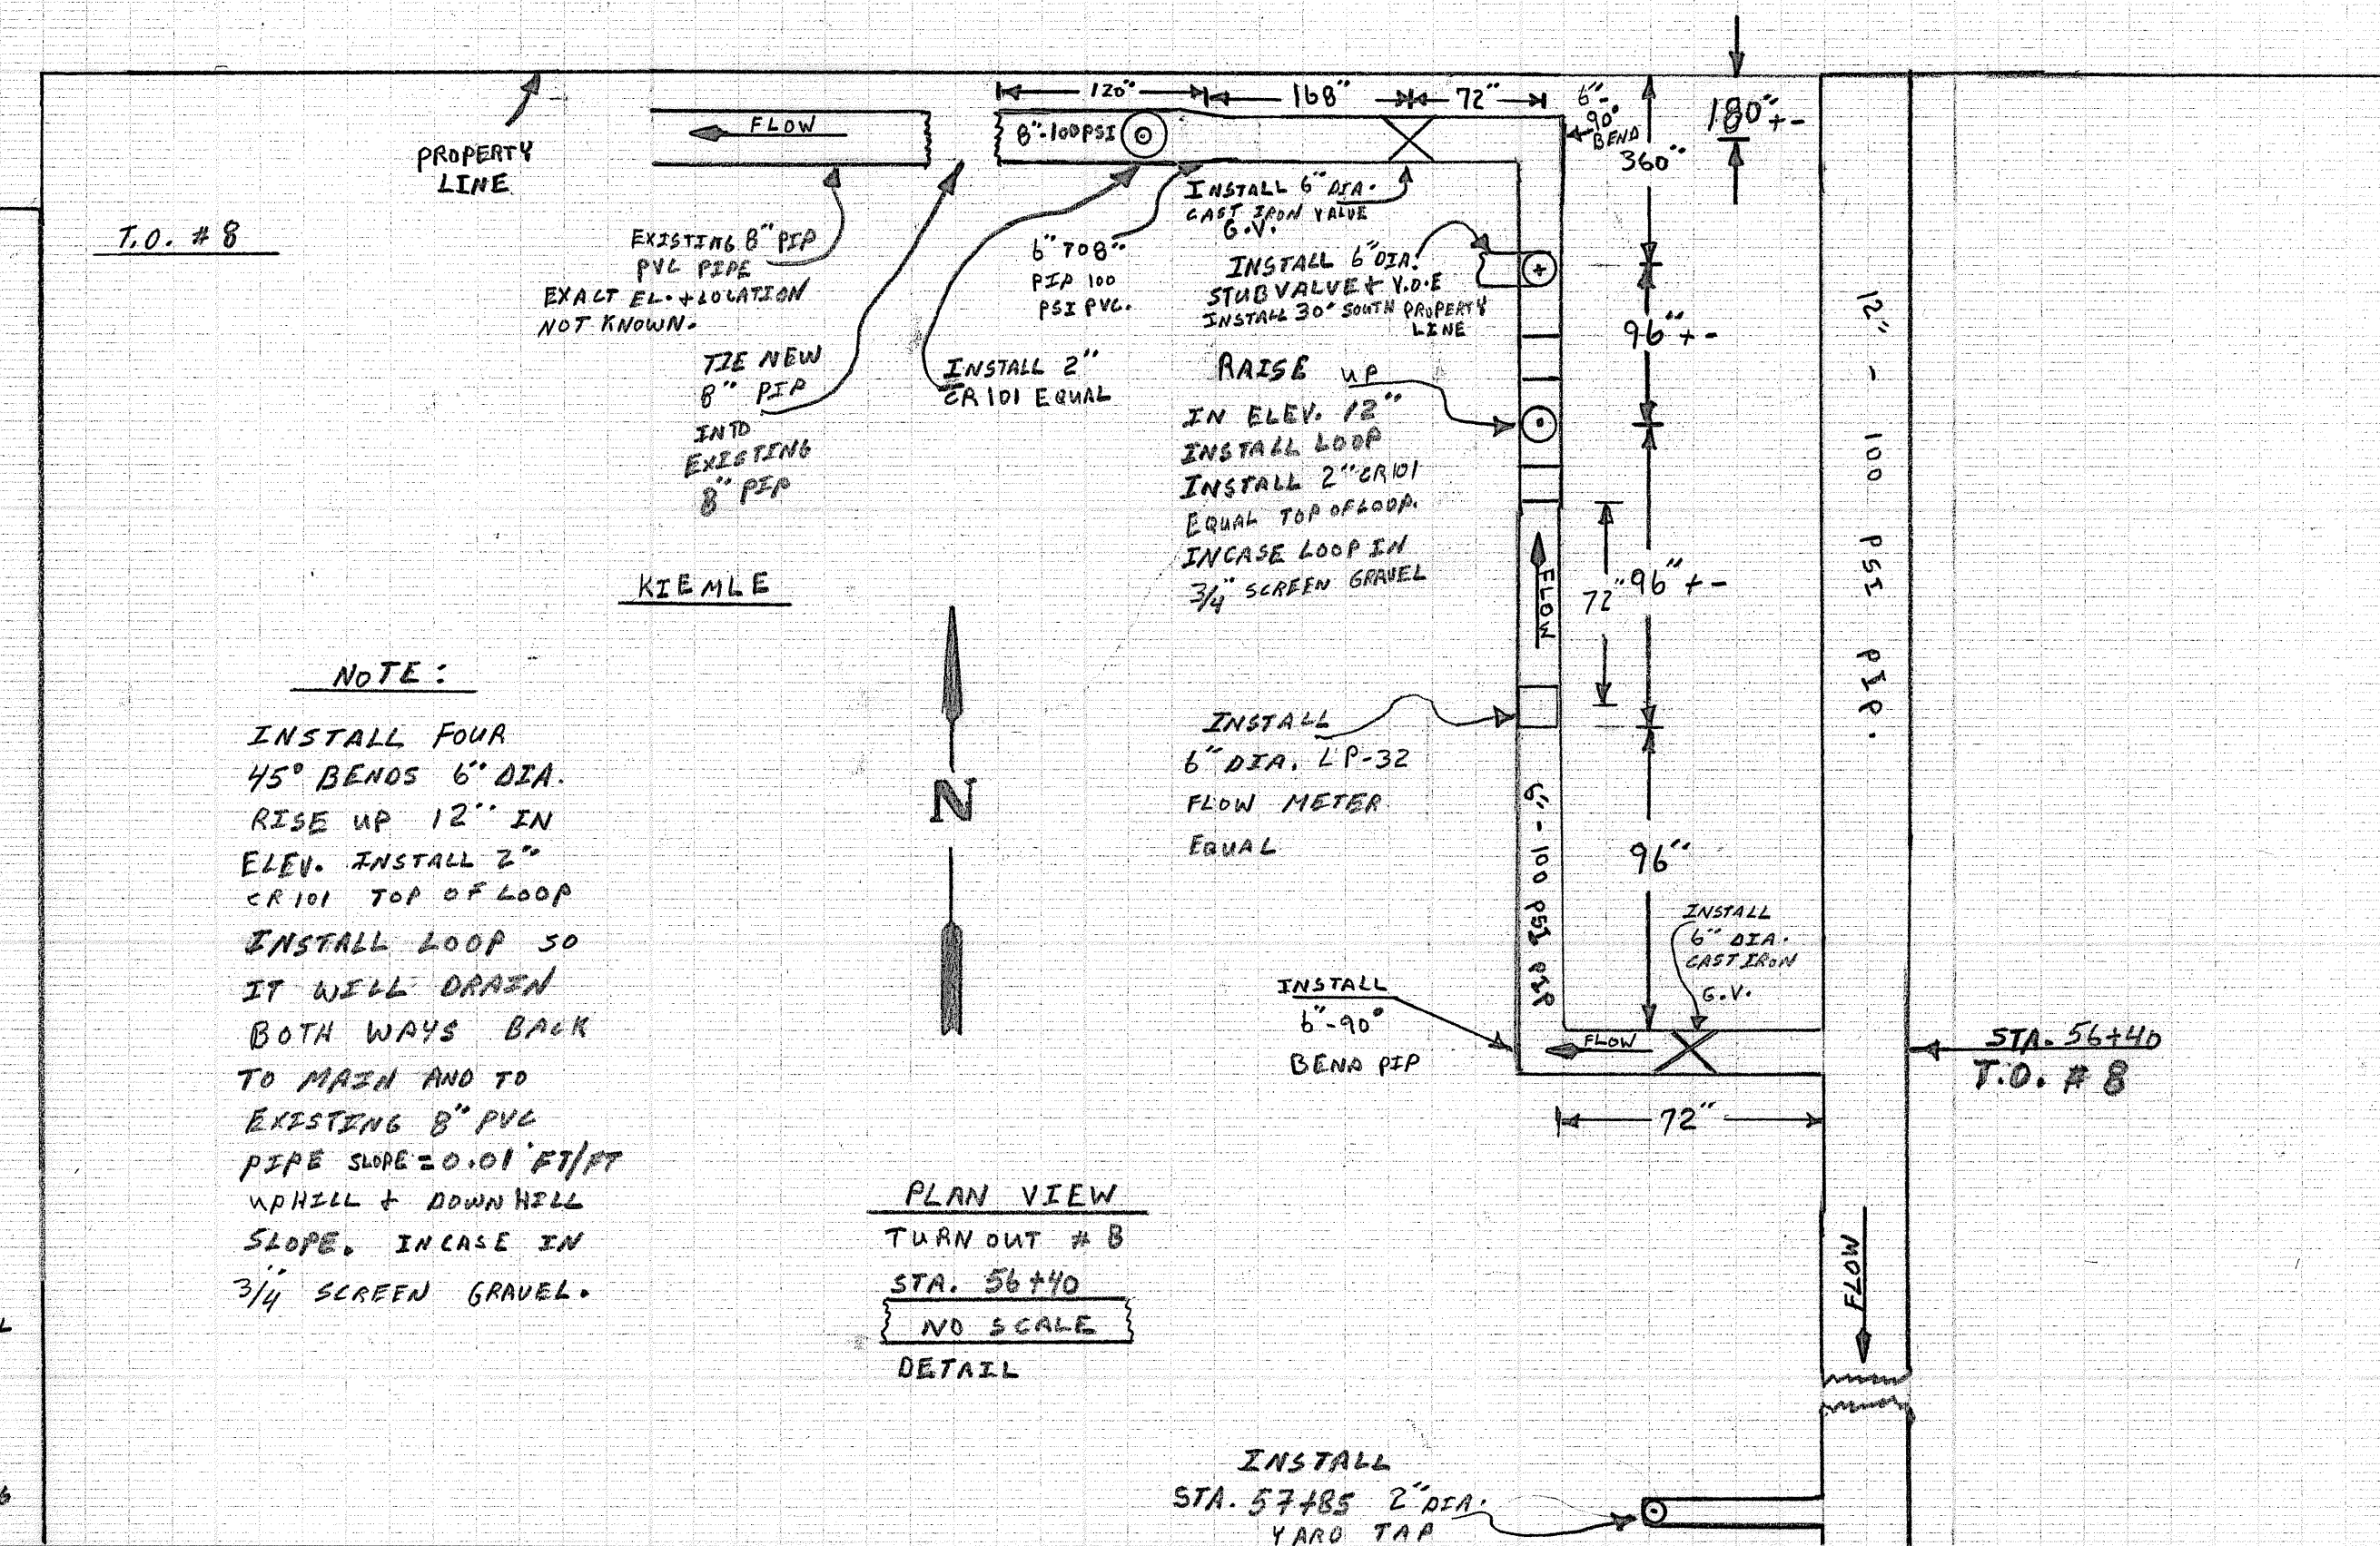 120"
168"
72"
6"-
90°
BEND
360"
180"+-
FLOW
8"-100PSI
PROPERTY
LINE
T.O. # 8
EXISTING 8" PIP
PVC PIPE
EXACT EL.+LOCATION
NOT KNOWN.
TIE NEW
8" PIP
INTO
EXISTING
8" PIP
6" TO 8"
PIP 100
PSI PVC.
INSTALL 2"
CR101 EQUAL
INSTALL 6" DIA.
CAST IRON VALUE
G.V.
INSTALL 6" DIA.
STUB VALVE + V.O.E
INSTALL 30' SOUTH PROPERTY
LINE
96"+-
RAISE UP
IN ELEV. 12"
INSTALL LOOP
INSTALL 2" CR101
EQUAL TOP OF LOOP.
INCASE LOOP IN
3/4" SCREEN GRAVEL
FLOW
72"
96"+-
12" - 100 PSI PIP.
KIEMLE
N
NOTE:
INSTALL FOUR
45° BENDS 6" DIA.
RISE UP 12" IN
ELEV. INSTALL 2"
CR101 TOP OF LOOP
INSTALL LOOP SO
IT WILL DRAIN
BOTH WAYS BACK
TO MAIN AND TO
EXISTING 8" PVC
PIPE SLOPE = 0.01 FT/FT
UPHILL + DOWNHILL
SLOPE. INCASE IN
3/4" SCREEN GRAVEL.
INSTALL
6" DIA. LP-32
FLOW METER
EQUAL
6" - 100 PSI PIP
96"
INSTALL
6" DIA.
CAST IRON
G.V.
INSTALL
6"-90°
BEND PIP
FLOW
72"
STA. 56+40
T.O. # 8
PLAN VIEW
TURN OUT # 8
STA. 56+40
NO SCALE
DETAIL
FLOW
INSTALL
STA. 57+85 2" DIA.
YARD TAP